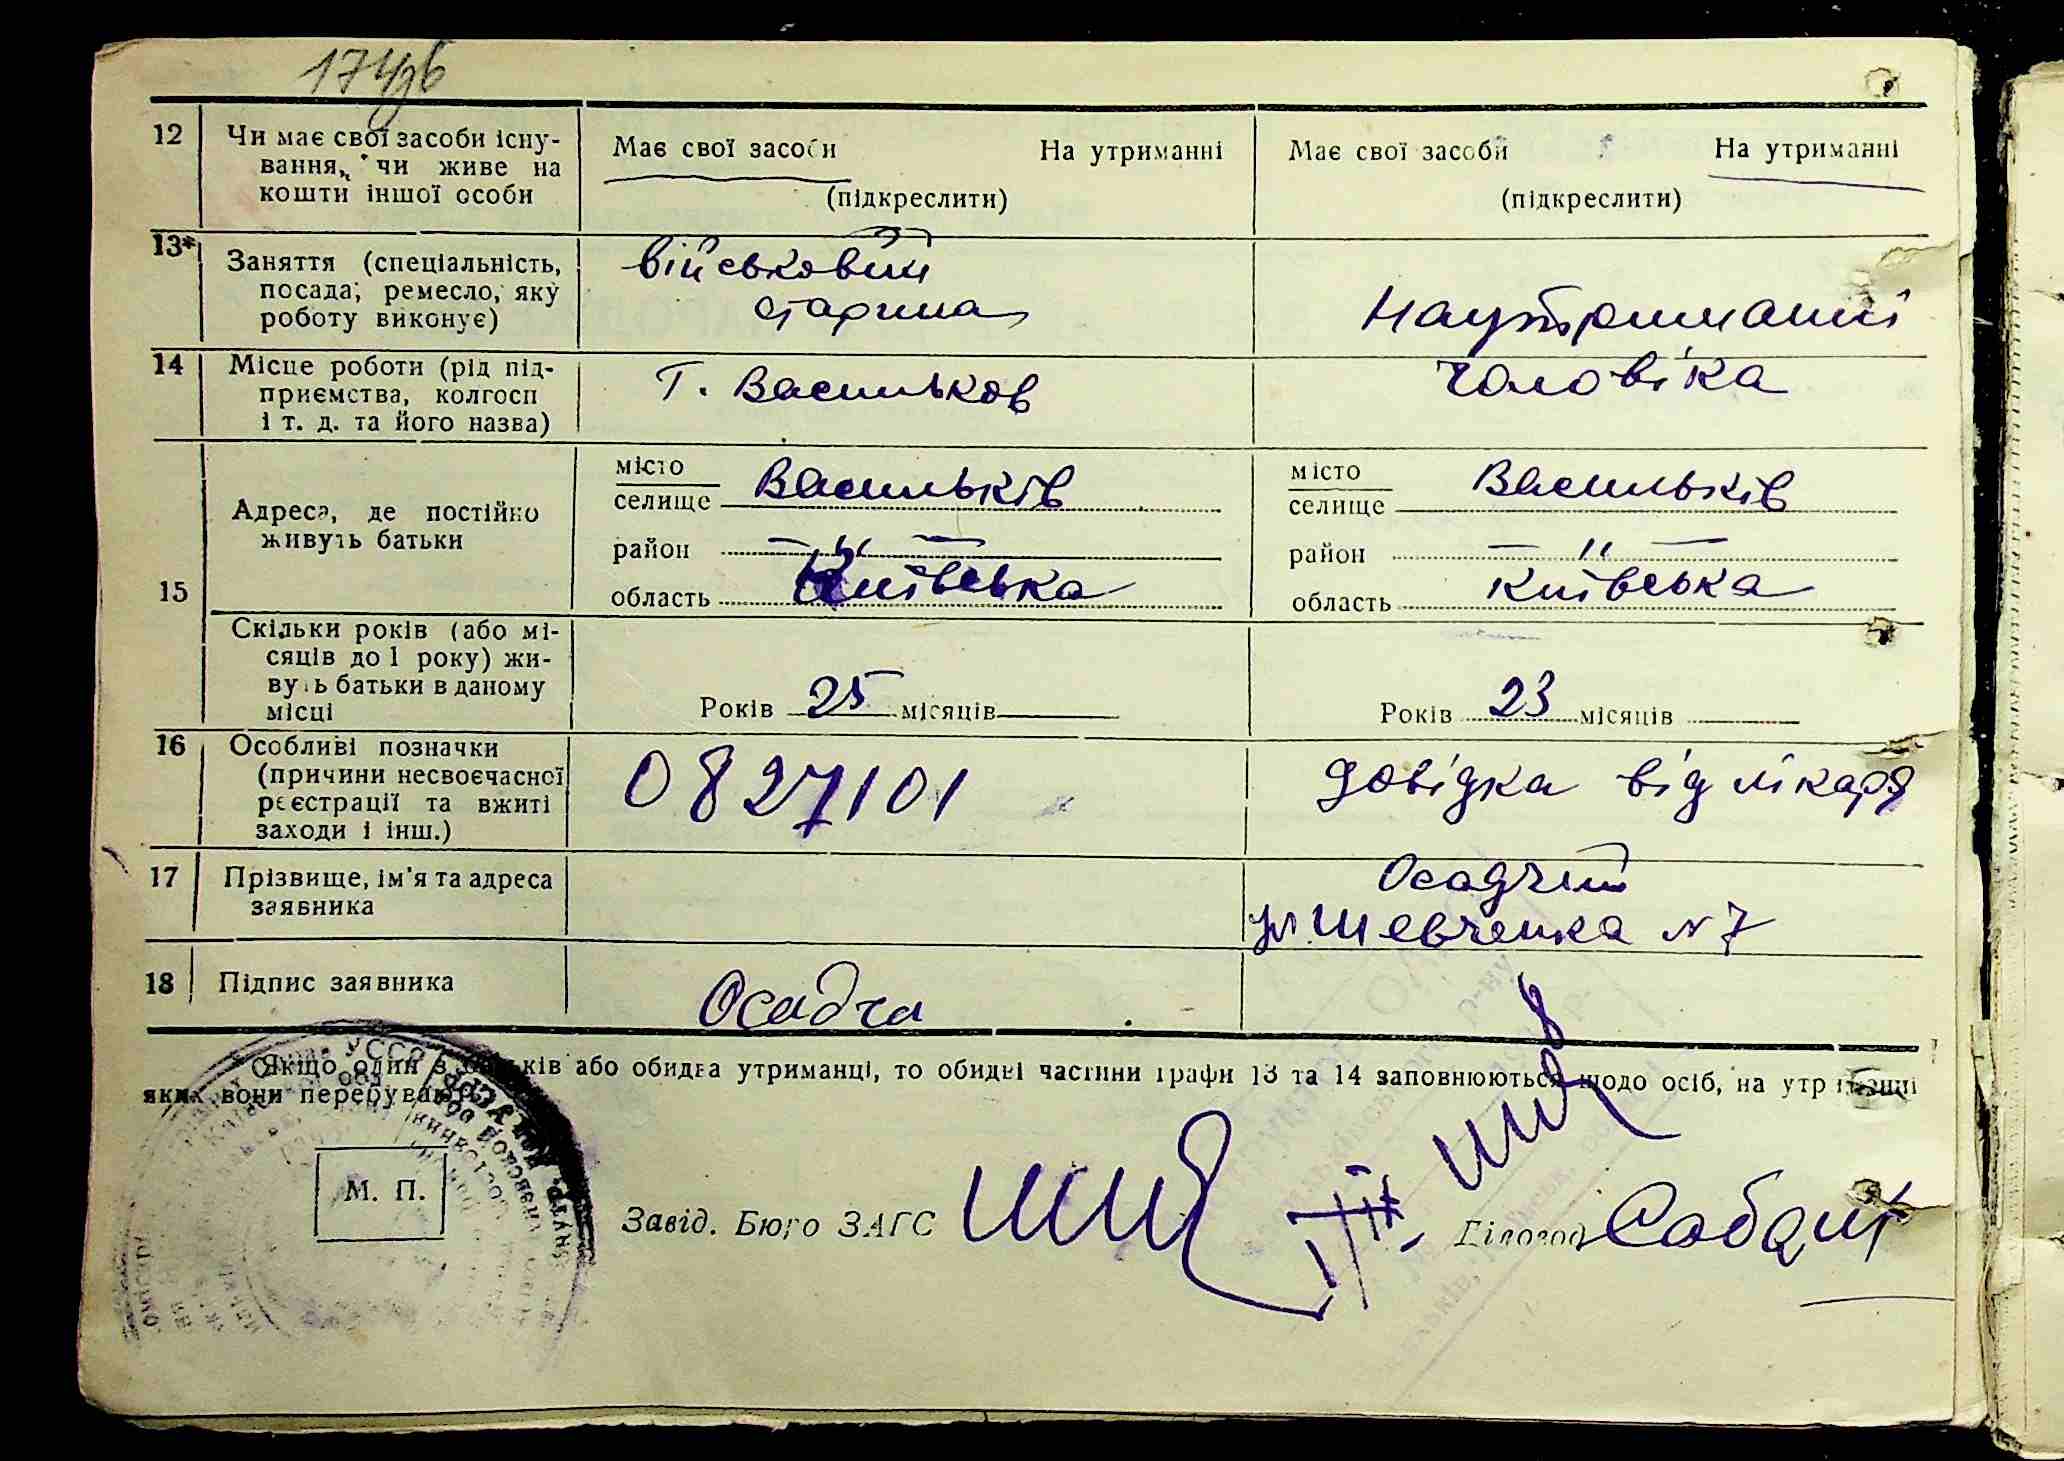 174зв
12 Чи має свої засоби існу- Має свої засоби На утриманні Має свої засоби На утриманні
вання, чи живе на
кошти іншої особи (підкреслити) (підкреслити)
13* Заняття (спеціальність, військовий
посада, ремесло, яку старшина Наутриманні
роботу виконує)
14 Місце роботи (рід під- Г. Васильков чоловіка
приємства, колгосп
і т. д. та його назва)
15 Адреса, де постійно живуть батьки
місто Васильків місто Васильків
селище селище
район — " — район — " —
область Київська область Київська
Скільки років (або мі-
сяців до 1 року) жи-
вуть батьки в даному
місці Років 25 місяців Років 23 місяців
16 Особливі позначки
(причини несвоєчасної 0827101 довідка від лікаря
реєстрації та вжиті
заходи і інш.)
17 Прізвище, ім'я та адреса Осадчий
заявника ул. Шевченка №7
18 Підпис заявника Осадча
* Якщо один з батьків або обидва утриманці, то обидві частини графи 13 та 14 заповнюються щодо осіб, на утриманні
яких вони перебувають.
М. П.
Завід. Бюро ЗАГС Діловод